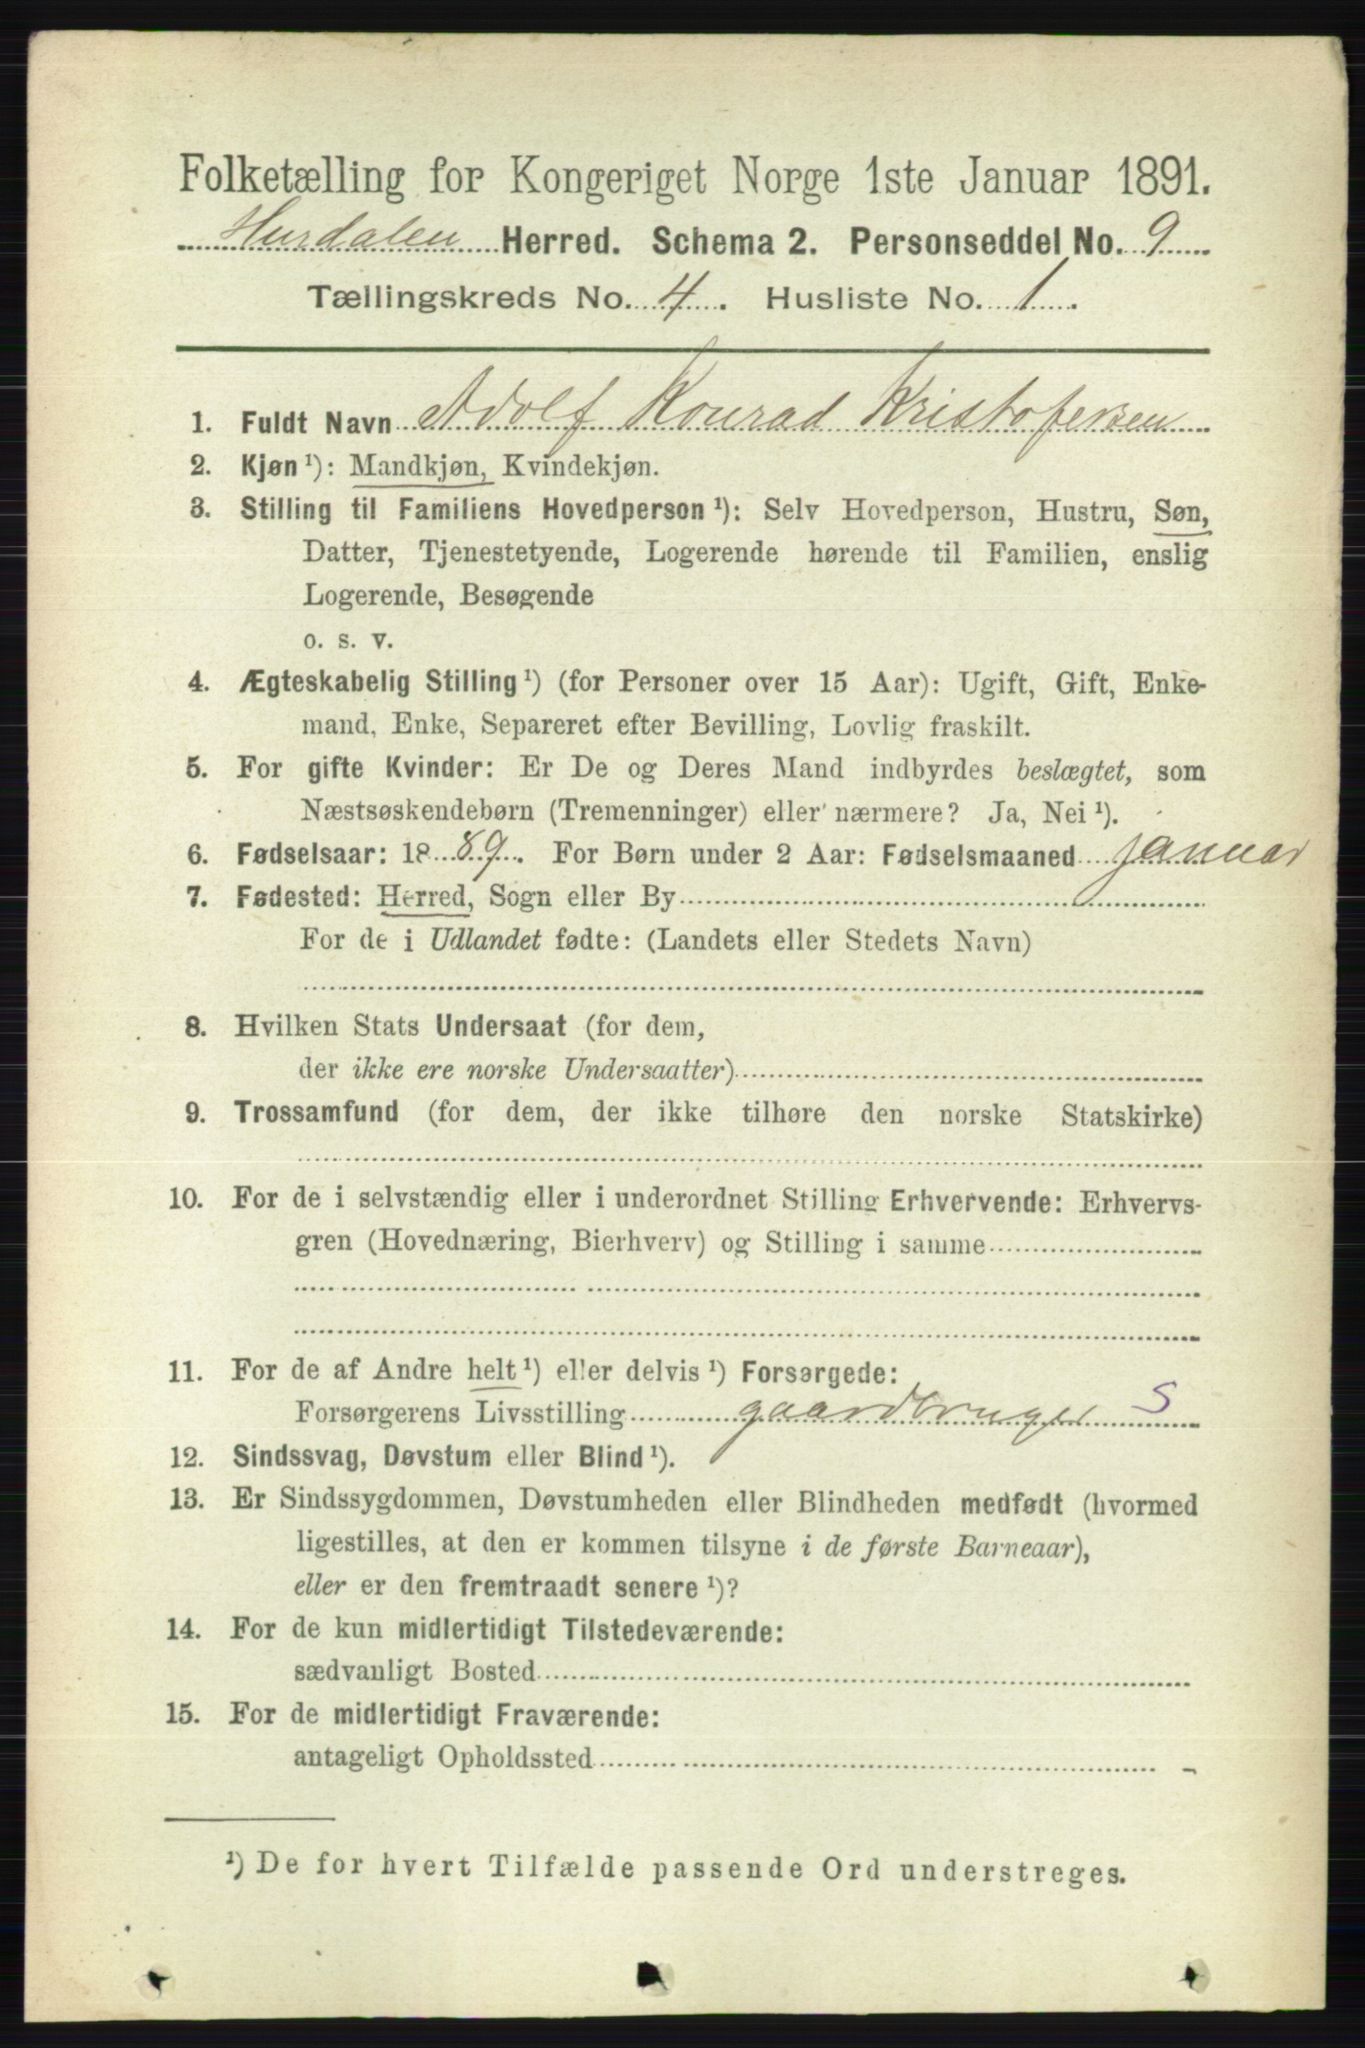 Folketælling for Kongeriget Norge 1ste Januar 1891.
Hurdalen Herred. Schema 2. Personseddel No. 9
Tællingskreds No. 4. Husliste No. 1.
1. Fuldt Navn Adolf Konrad Kristofersen
2. Kjøn ¹): Mandkjøn, Kvindekjøn.
3. Stilling til Familiens Hovedperson ¹): Selv Hovedperson, Hustru, Søn,
Datter, Tjenestetyende, Logerende hørende til Familien, enslig
Logerende, Besøgende
o. s. v.
4. Ægteskabelig Stilling ¹) (for Personer over 15 Aar): Ugift, Gift, Enke-
mand, Enke, Separeret efter Bevilling, Lovlig fraskilt.
5. For gifte Kvinder: Er De og Deres Mand indbyrdes beslægtet, som
Næstsøskendebørn (Tremenninger) eller nærmere? Ja, Nei ¹).
6. Fødselsaar: 1889. For Børn under 2 Aar: Fødselsmaaned januar
7. Fødested: Herred, Sogn eller By
For de i Udlandet fødte: (Landets eller Stedets Navn)
8. Hvilken Stats Undersaat (for dem,
der ikke ere norske Undersaatter)
9. Trossamfund (for dem, der ikke tilhøre den norske Statskirke)
10. For de i selvstændig eller i underordnet Stilling Erhvervende: Erhvervs-
gren (Hovednæring, Bierhverv) og Stilling i samme
11. For de af Andre helt ¹) eller delvis ¹) Forsørgede:
Forsørgerens Livsstilling gaardbruger S
12. Sindssvag, Døvstum eller Blind ¹).
13. Er Sindssygdommen, Døvstumheden eller Blindheden medfødt (hvormed
ligestilles, at den er kommen tilsyne i de første Barneaar),
eller er den fremtraadt senere ¹)?
14. For de kun midlertidigt Tilstedeværende:
sædvanligt Bosted
15. For de midlertidigt Fraværende:
antageligt Opholdssted
¹) De for hvert Tilfælde passende Ord understreges.